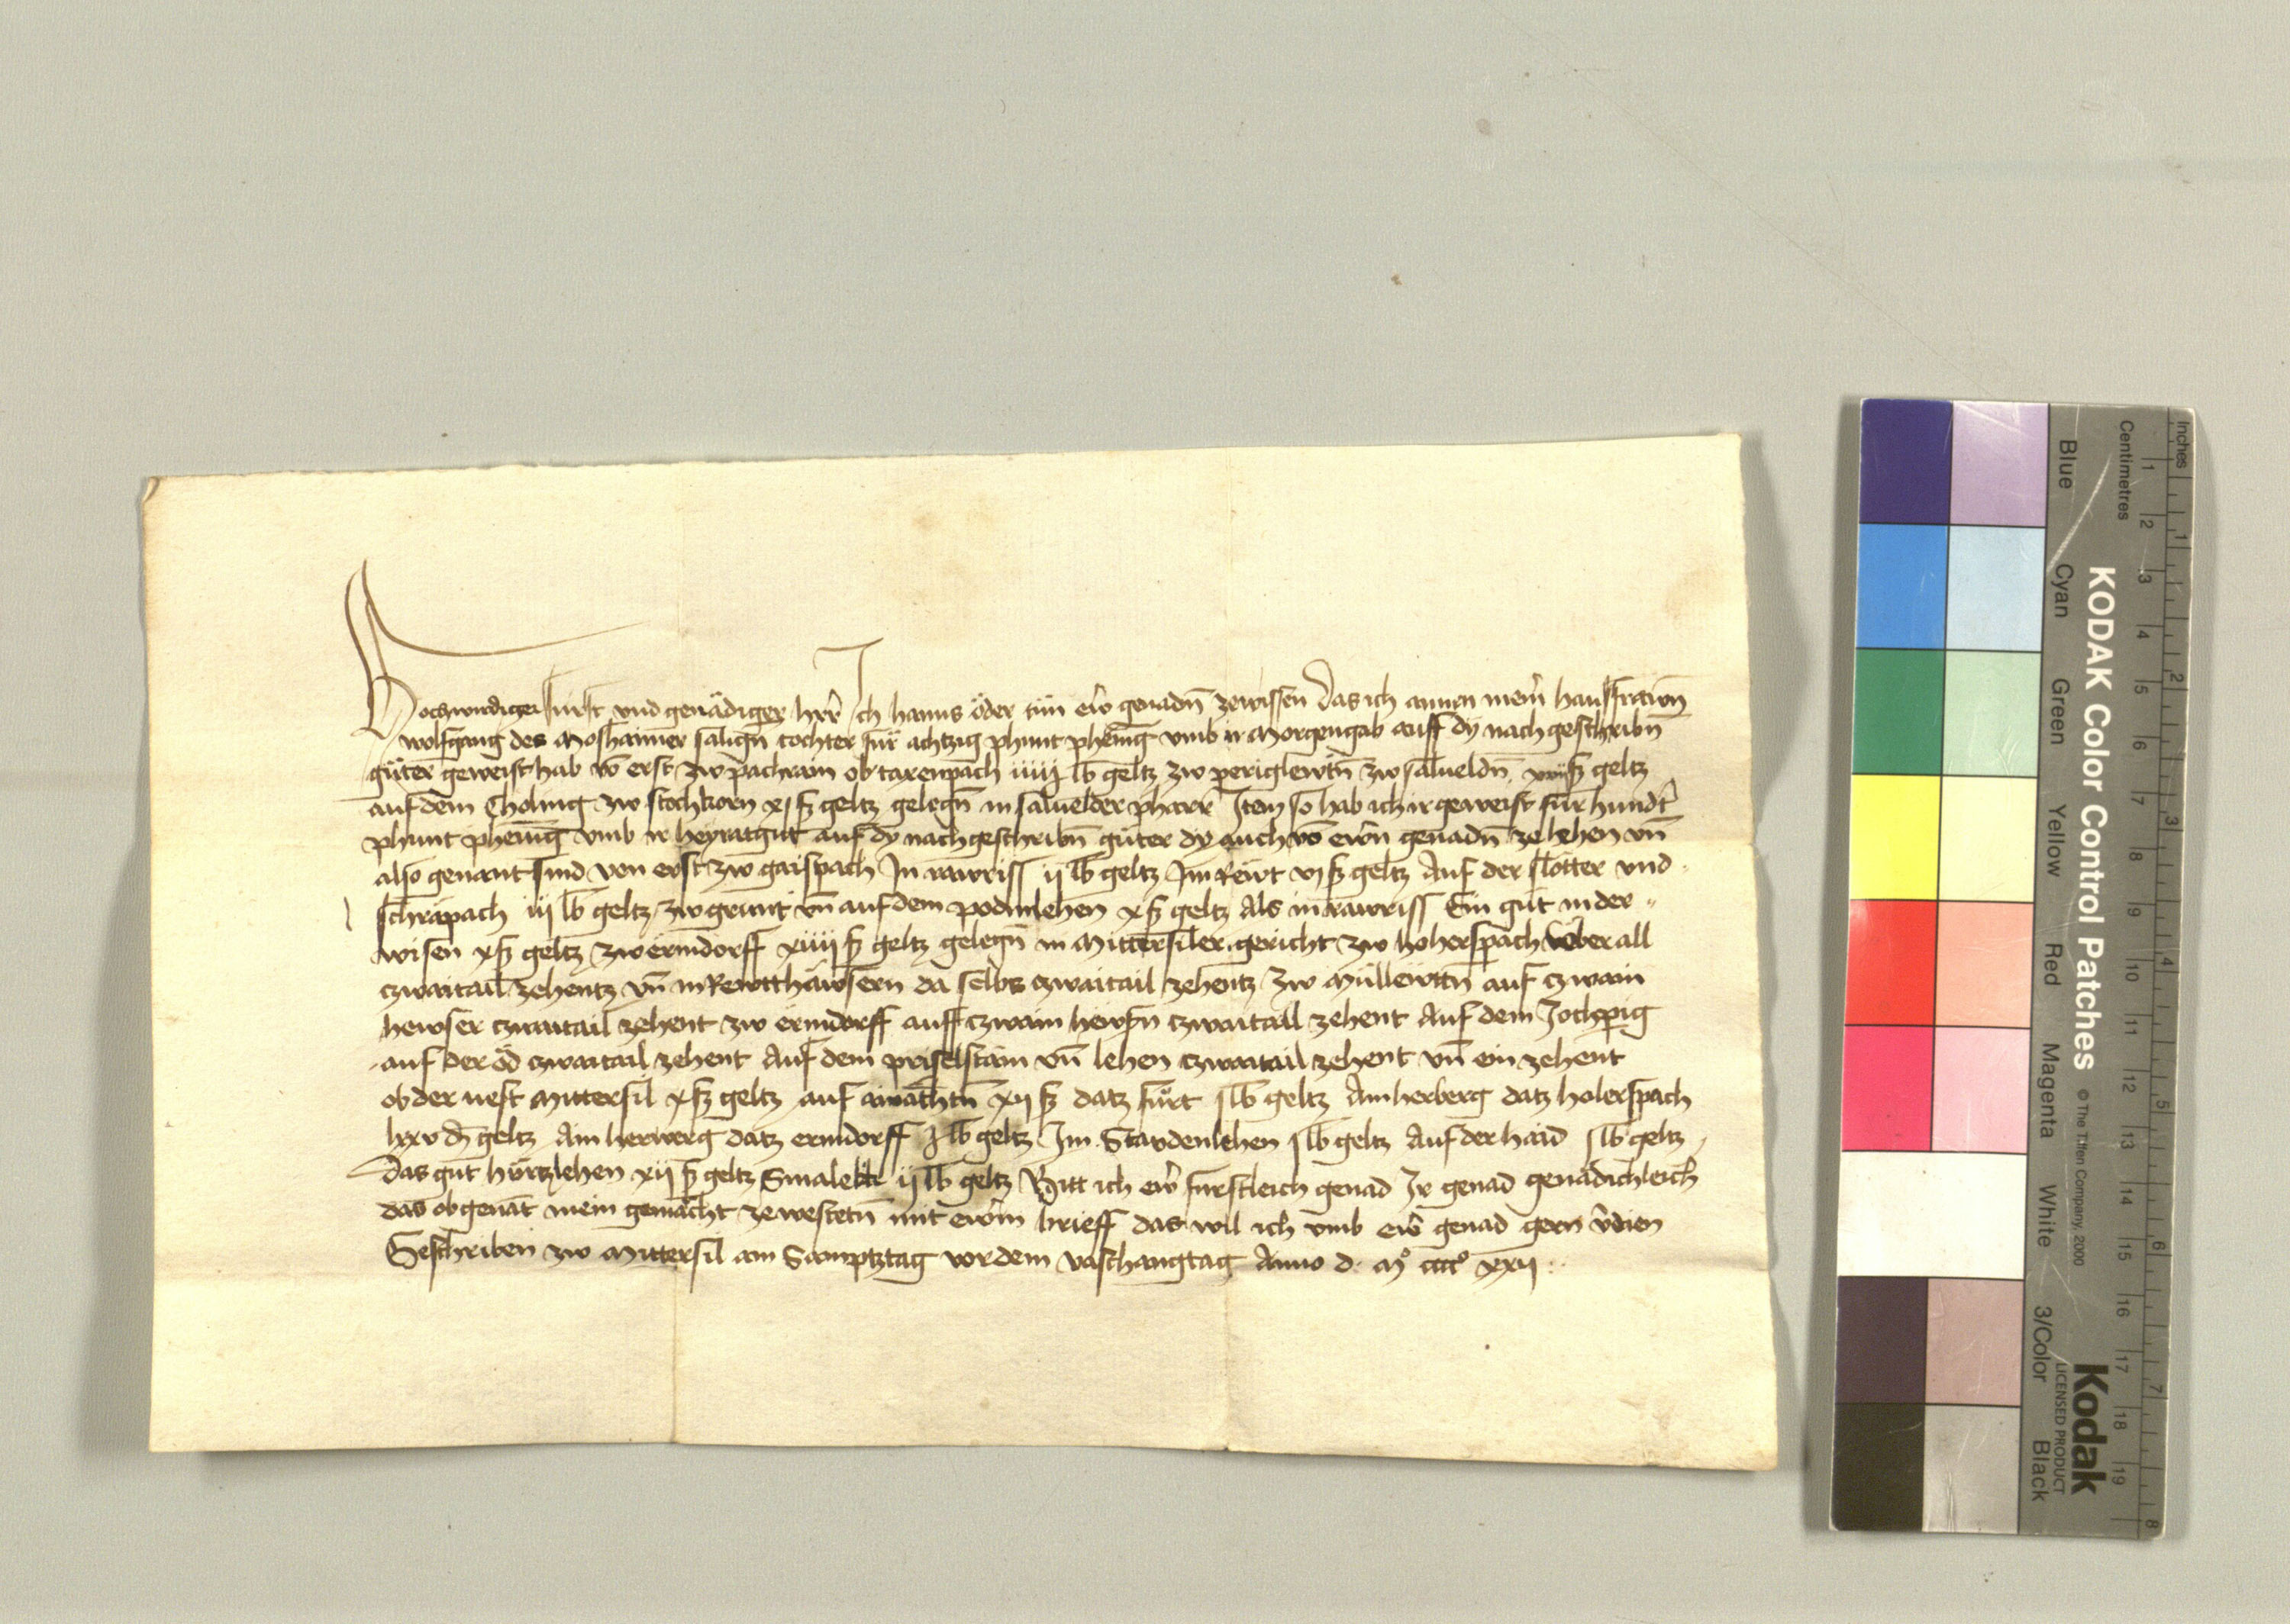 Hochwirdiger furst und genädiger herr Ich hanns öder tün ewr̄ genadn̄ zewissen das ich annen mein̄ hausfrawn̄
wolfgang des Moshaimer sälign̄ tochter für achtzig phunt phenīg vmb ir Morgengab auff dy nach geschribn̄
güter geweist hab vō erst zw pachrain ob taxenpach iiiij lb geltz zw periglewtn̄ zw salueldn̄ geltz
auf dem Choling zw stochkorn xj ß geltz gelegn̄ in salueldēr pharr Item so hab ich ir geweist für hundt̄
phunt phenīg vmb ir heyratgut auf dy nachgeschribn̄ güter dy auch vō ewrn̄ genadn̄ ze lehen vn̄
also genant sind von erst zw gaispach In rawriss ij lb geltz Im Rewt vj ß geltz Auf der slotter vnd
schrapach iij lb geltz zw grunt vn̄ auf dem podmlehen x ß geltz Als in rawriss Ein gut in der
wisen x ß geltz zw ermdorff xiiij ß geltz gelegn̄ in Mittersiler gericht zw holerspach vber all
czwaitail zehentz vn̄ in Rewtthäwsern da selbs czwaitail zehentz zw Müllewttn̄ auf czwain
hewser czwaitail zehent zw ermdorff auff czwain hewsn̄ czwaitail zehent Auf dem Jochpig
auf der öd czwaitail zehent Auf dem priselstain vn̄ lehen czwaitail zehent vn̄ ein zehent
ob der uest Mittersil x ß geltz auf xij ß datz fürt j lb geltz Am herberg datz holerspach
lxxv dn̄ geltz Am herwerg datz ermdorff lb geltz Im Stawdenlehen j lb geltz Auf der haid j lb geltz
das gut hürtzlehen xij ß geltz Smalekk ij lb geltz Bitt ich ewr̄ furstleich genad Ir genad genädichleich
das obgenāt mein gemächt ze westetn̄ mit ewrm̄ brieff das wil ich vmb ewr̄ genad gern v̄dien
Geschriben zw Mittersil am Samptztag vor dem vaschangtag Anno d. Mº ccccº xxij
Inches
Centimetres
1 2 3 4 5 6 7 8 9 10 11 12 13 14 15 16 17 18 19
1 2 3 4 5 6 7 8
KODAK Color Control Patches
© The Tiffen Company, 2000
Kodak
LICENSED PRODUCT
Blue Cyan Green Yellow Red Magenta White 3/Color Black